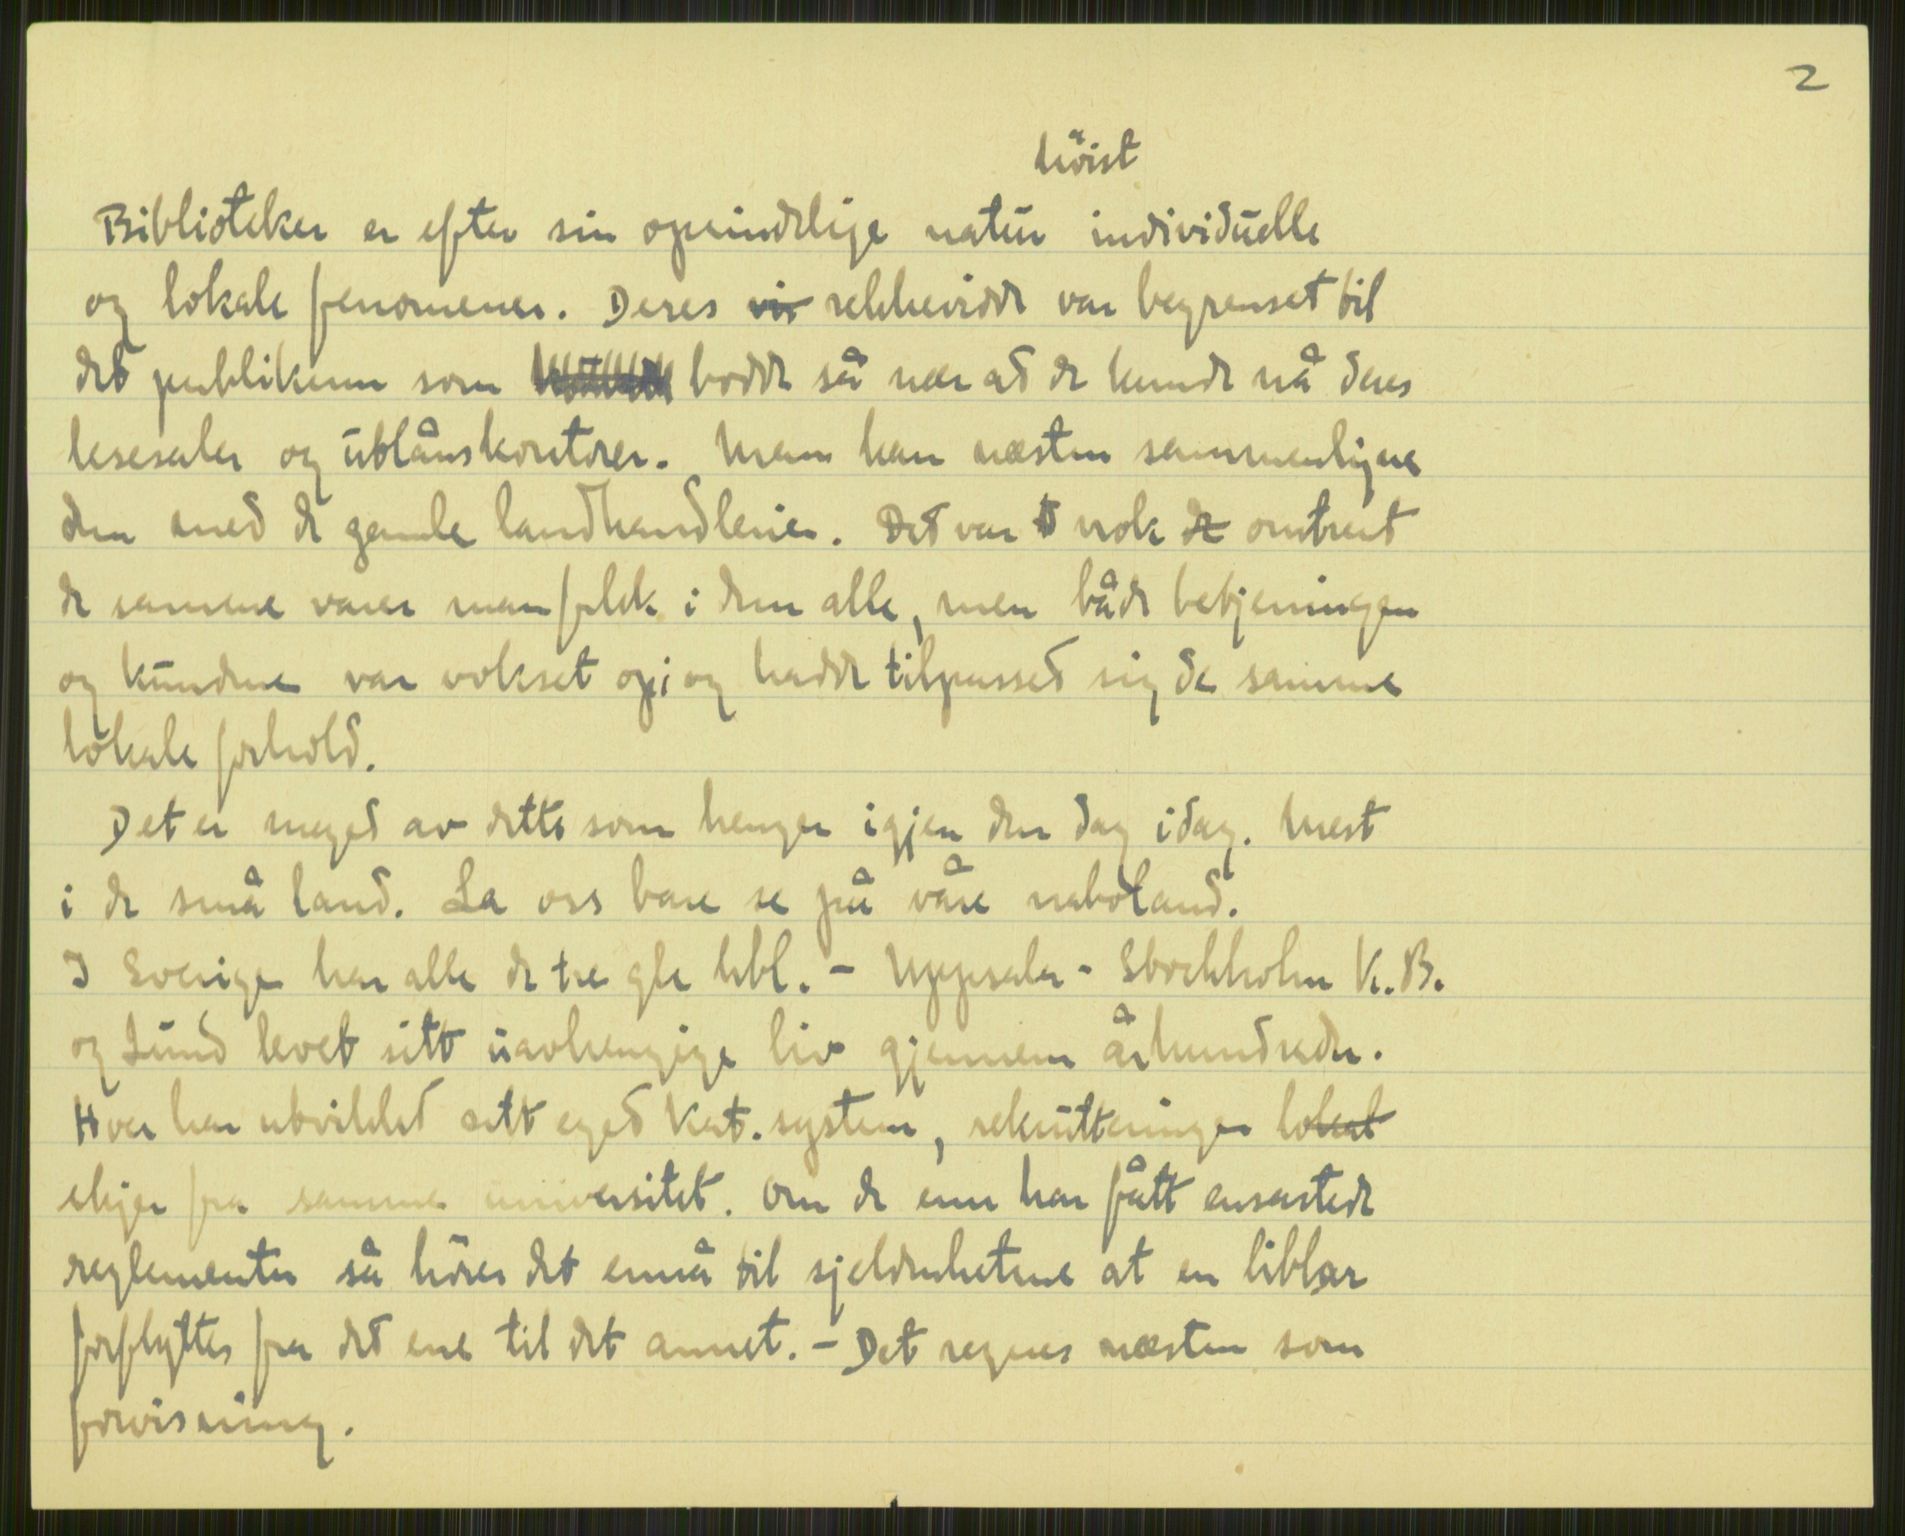 2
höist
Biblioteker er efter sin oprindelige natur individuelle
og lokale fenomener. Deres vir rekkevidde var begrenset til
det publikum som bodde så nær at de kunde nå deres
lesesaler og utlånskontorer. Man kan næsten sammenligne
dem med de gamle landhandlerier. Det var t nok de omtrent
de samme varer man fikk i dem alle, men både betjeningen
og kundene var vokset op i og hadde tilpasset sig de samme
lokale forhold.
Det er meget av dette som henger igjen den dag idag. Mest
i de små land. La oss bare se på våre naboland.
I Sverige har alle de tre gle bbl. - Uppsala - Stockholm K.B.
og Lund levet sitt uavhengige liv gjennem århundreder.
Hver har utviklet sitt eget kat. system, rekrutteringen lokal
skjer fra samme universitet. Om de enn har fått ensartede
reglementer så hörer det ennå til sjeldenhetene at en biblær
forflyttes fra det ene til det annet. - Det regnes næsten som
forvisning.